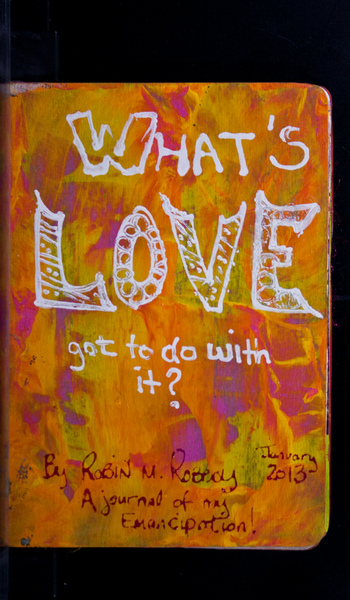 WHAT'S
LOVE
got to do with
it?
By ROBIN M. January
2013
A journal of my
Emancipation!